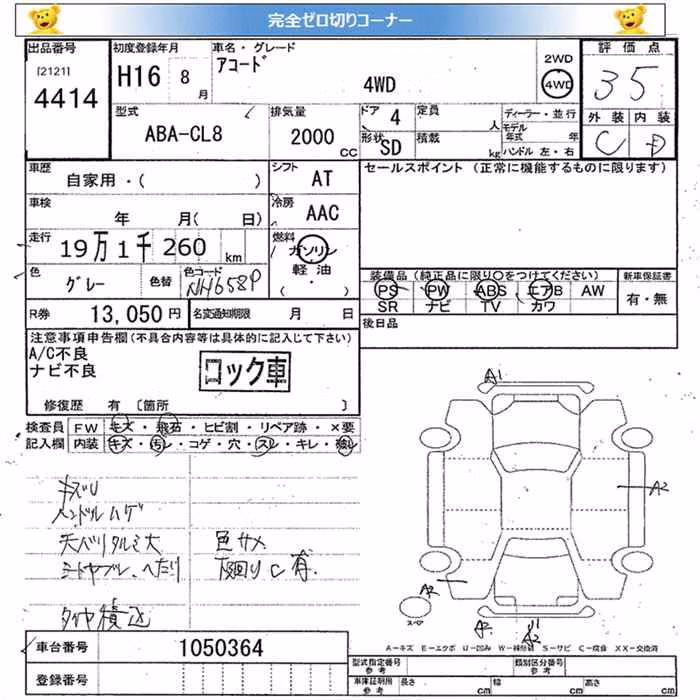 完全ゼロ切りコーナー
出品番号
[2121]
4414
初度登録年月
H16 8 月
車名・グレード
アコード
4WD
2WD
4WD
評価点
35
型式
ABA-CL8
排気量
2000 CC
ドア 4
形状 SD
定員 人
積載 kg
ディーラー・並行
モデル年式 年
ハンドル 左・右
外装 内装
C D
車歴
自家用・( )
シフト AT
車検
年 月( 日)
冷房 AAC
走行
19万1千260 km
燃料
ガソリン
軽油
( ・ )
色
グレー
色替
色コード
NH658P
R券 13,050円
名変通知期限 月 日
セールスポイント (正常に機能するものに限ります)
装備品 (純正品に限り○をつけてください)
PS PW ABS エアB AW
SR ナビ TV カワ
新車保証書
有・無
後日品
注意事項申告欄(不具合内容等は具体的に記入して下さい)
A/C不良
ナビ不良
ロック車
修復歴 有 [箇所 ]
検査員記入欄
FW キズ・飛石・ヒビ割・リペア跡・×要
内装 キズ・汚レ・コゲ・穴・スレ・キレ・無し
キズU
ハンドルハゲ
天バリタルミ大 色サメ
シートヤブレ、へたり 下廻りC有.
タイヤ積込
A1
A2
A2
A2
U1
A2
スペア
A－キズ E－エクボ U－凹み W－補修跡 S－サビ C－腐食 XX－交換済
車台番号 1050364
登録番号
型式指定番号 参考
類別区分番号 参考
車庫証明用 参考
長さ cm 幅 cm 高さ cm